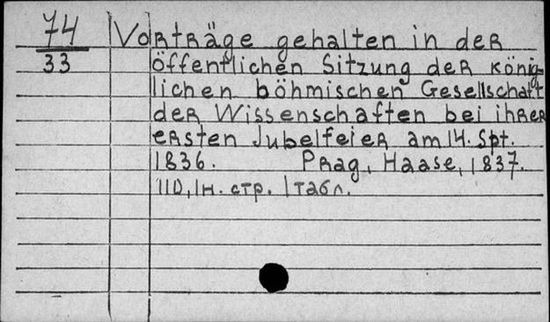 74
33
Vorträge gehalten in der
öffentlichen Sitzung der König-
lichen böhmischen Gesellschaft
der Wissenschaften bei ihrer
ersten Jubelfeier am 14. Spt.
1836. Prag, Haase, 1837.
110, 1 н. стр. 1 табл.